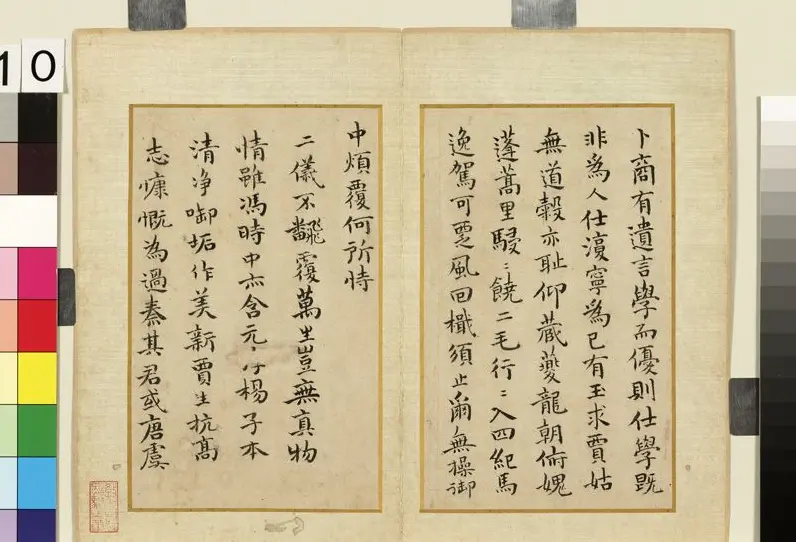 卜商有遺言學而優則仕學既
非為人仕寧為已有玉求賈姑
無道穀亦恥仰蔵夔龍朝俯媿
蓬蒿里駸〻饒二毛行〻入四紀馬
逸駕可風回檥須止爾無操御
中煩覆何所恃
二儀不飜覆萬生豈無真物
情雖馮時中亦含元〻楊子本
清净啣垢作美新賈生抗高
志慷慨為過秦其君或唐虞
10